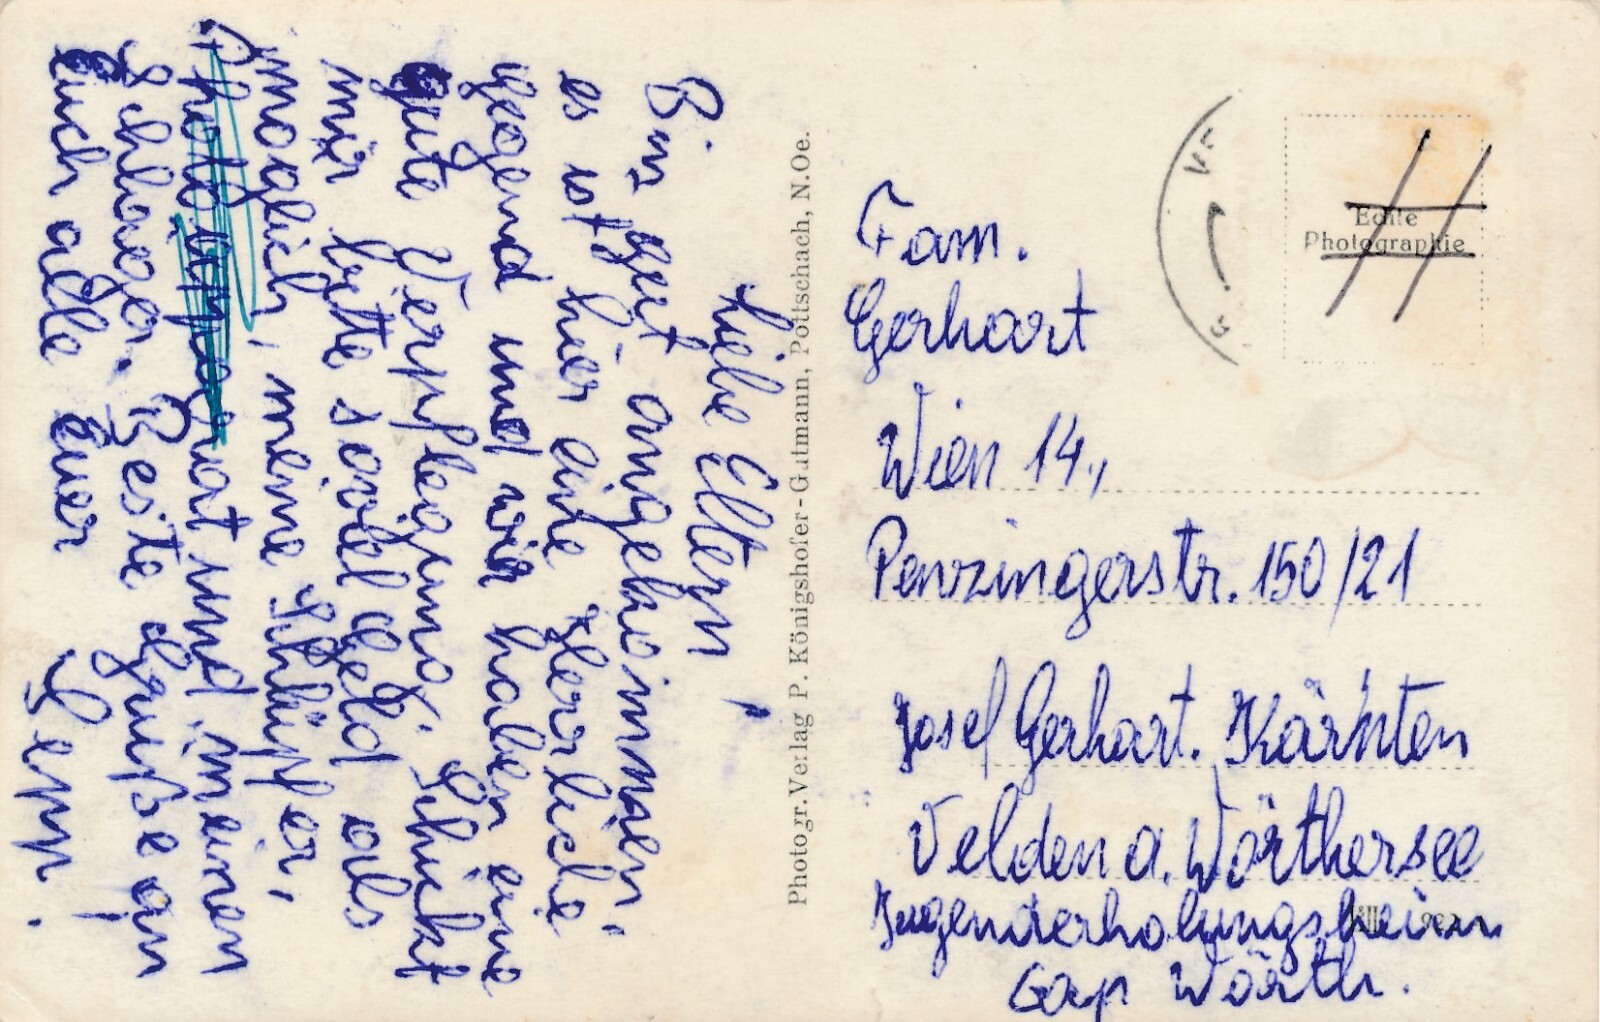 Liebe Eltern,
Bin gut angekommen,
es ist hier eine herrliche
Gegend und wir haben eine
gute Verpflegung. Schickt
mir bitte soviel Geld als
möglich, meine Schlüpfer,
Photoapparat und meinen
Schlager. Beste Grüße an
Euch alle Euer Sepp.
Photogr. Verlag P. Königshofer-Gutmann, Pottschach, N.Oe.
VE
Echte
Photographie
Fam.
Gerhart
Wien 14.,
Penzingerstr. 150/21
Josef Gerhart. Kärnten
Velden a. Wörthersee
Jugenderholungsheim
Cap Wörth.